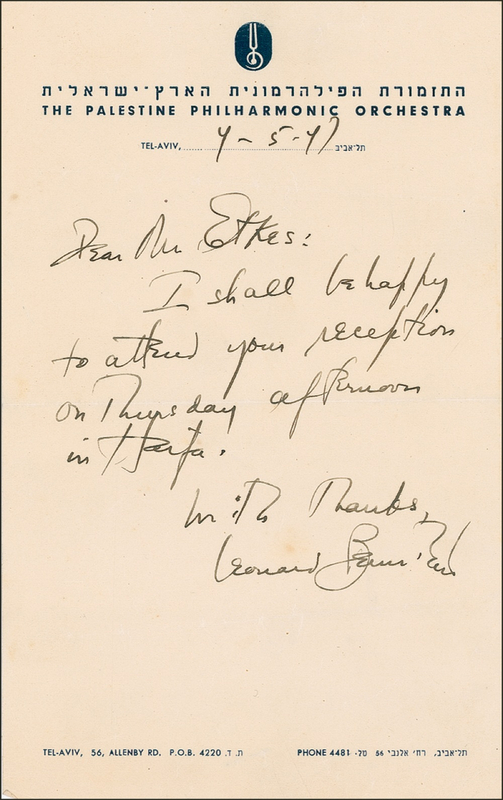 התזמורת הפילהרמונית הארץ־ישראלית
THE PALESTINE PHILHARMONIC ORCHESTRA
TEL-AVIV, 4-5-47 תל־אביב
Dear Mr Etkes:
I shall be happy
to attend your reception
on Thursday afternoon
in Haifa.
With Thanks,
Leonard Bernstein
TEL-AVIV, 56, ALLENBY RD. P.O.B. 4220 ת. ד. PHONE 4481 טל. תל־אביב, רח' אלנבי 56